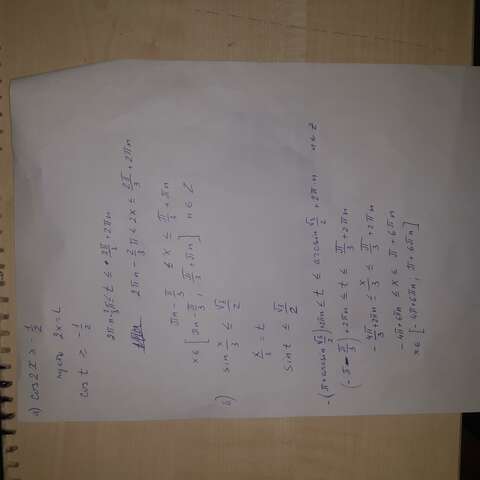 а) cos 2x ≥ -1/2
пусть 2x = t
cos t ≥ -1/2
2πn - 2π/3 ≤ t ≤ 2π/3 + 2πn
2πn - 2/3 π ≤ 2x ≤ 2π/3 + 2πn
πn - π/3 ≤ x ≤ π/3 + πn
x ∈ [πn - π/3 ; π/3 + πn] n ∈ Z
б) sin x/3 ≤ √3/2
x/3 = t
sin t ≤ √3/2
-(π + arcsin √3/2) + 2πn ≤ t ≤ arcsin √3/2 + 2πn n ∈ Z
(-π - π/3) + 2πn ≤ t ≤ π/3 + 2πn
-4π/3 + 2πn ≤ x/3 ≤ π/3 + 2πn
-4π + 6πn ≤ x ≤ π + 6πn
x ∈ [-4π + 6πn ; π + 6πn]